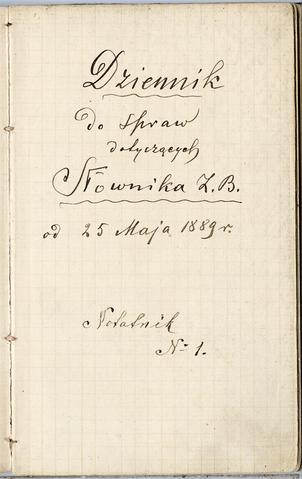 Dziennik
do spraw
dotyczących
Słownika Z. B.
od 25 Maja 1889 r.
Notatnik
No 1.